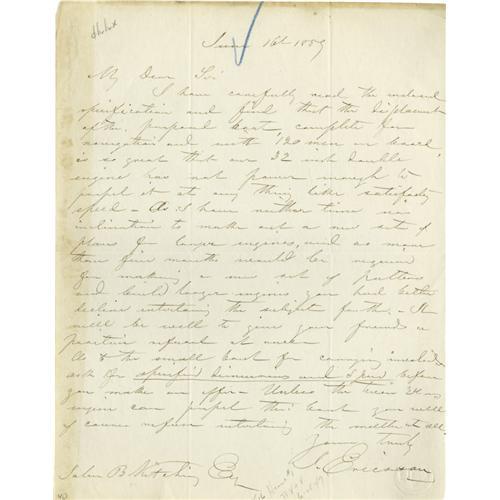 June 1st 1889
My Dear Sir
I have carefully read the enclosed
specification and find that the displacement
of the proposed boat, complete for
navigation and with 120 men on board
is so great that our 32 inch double
engine has not power enough to
propel it at any thing like satisfactory
speed – As I have neither time nor
inclination to make out a new set of
plans for larger engines, and as more
than five months would be required
for making a new set of patterns
and build larger engines you had better
decline entertaining the subject further. – It
will be well to give your friends a
positive refusal at once
As to the small boat for carrying
ask for specific dimensions and speed before
you make an offer – Unless the 24 in
engine can propel this boat you will
of course refuse entertaining the matter at all.
Yours truly
J. Ericsson
B Kitching Esq